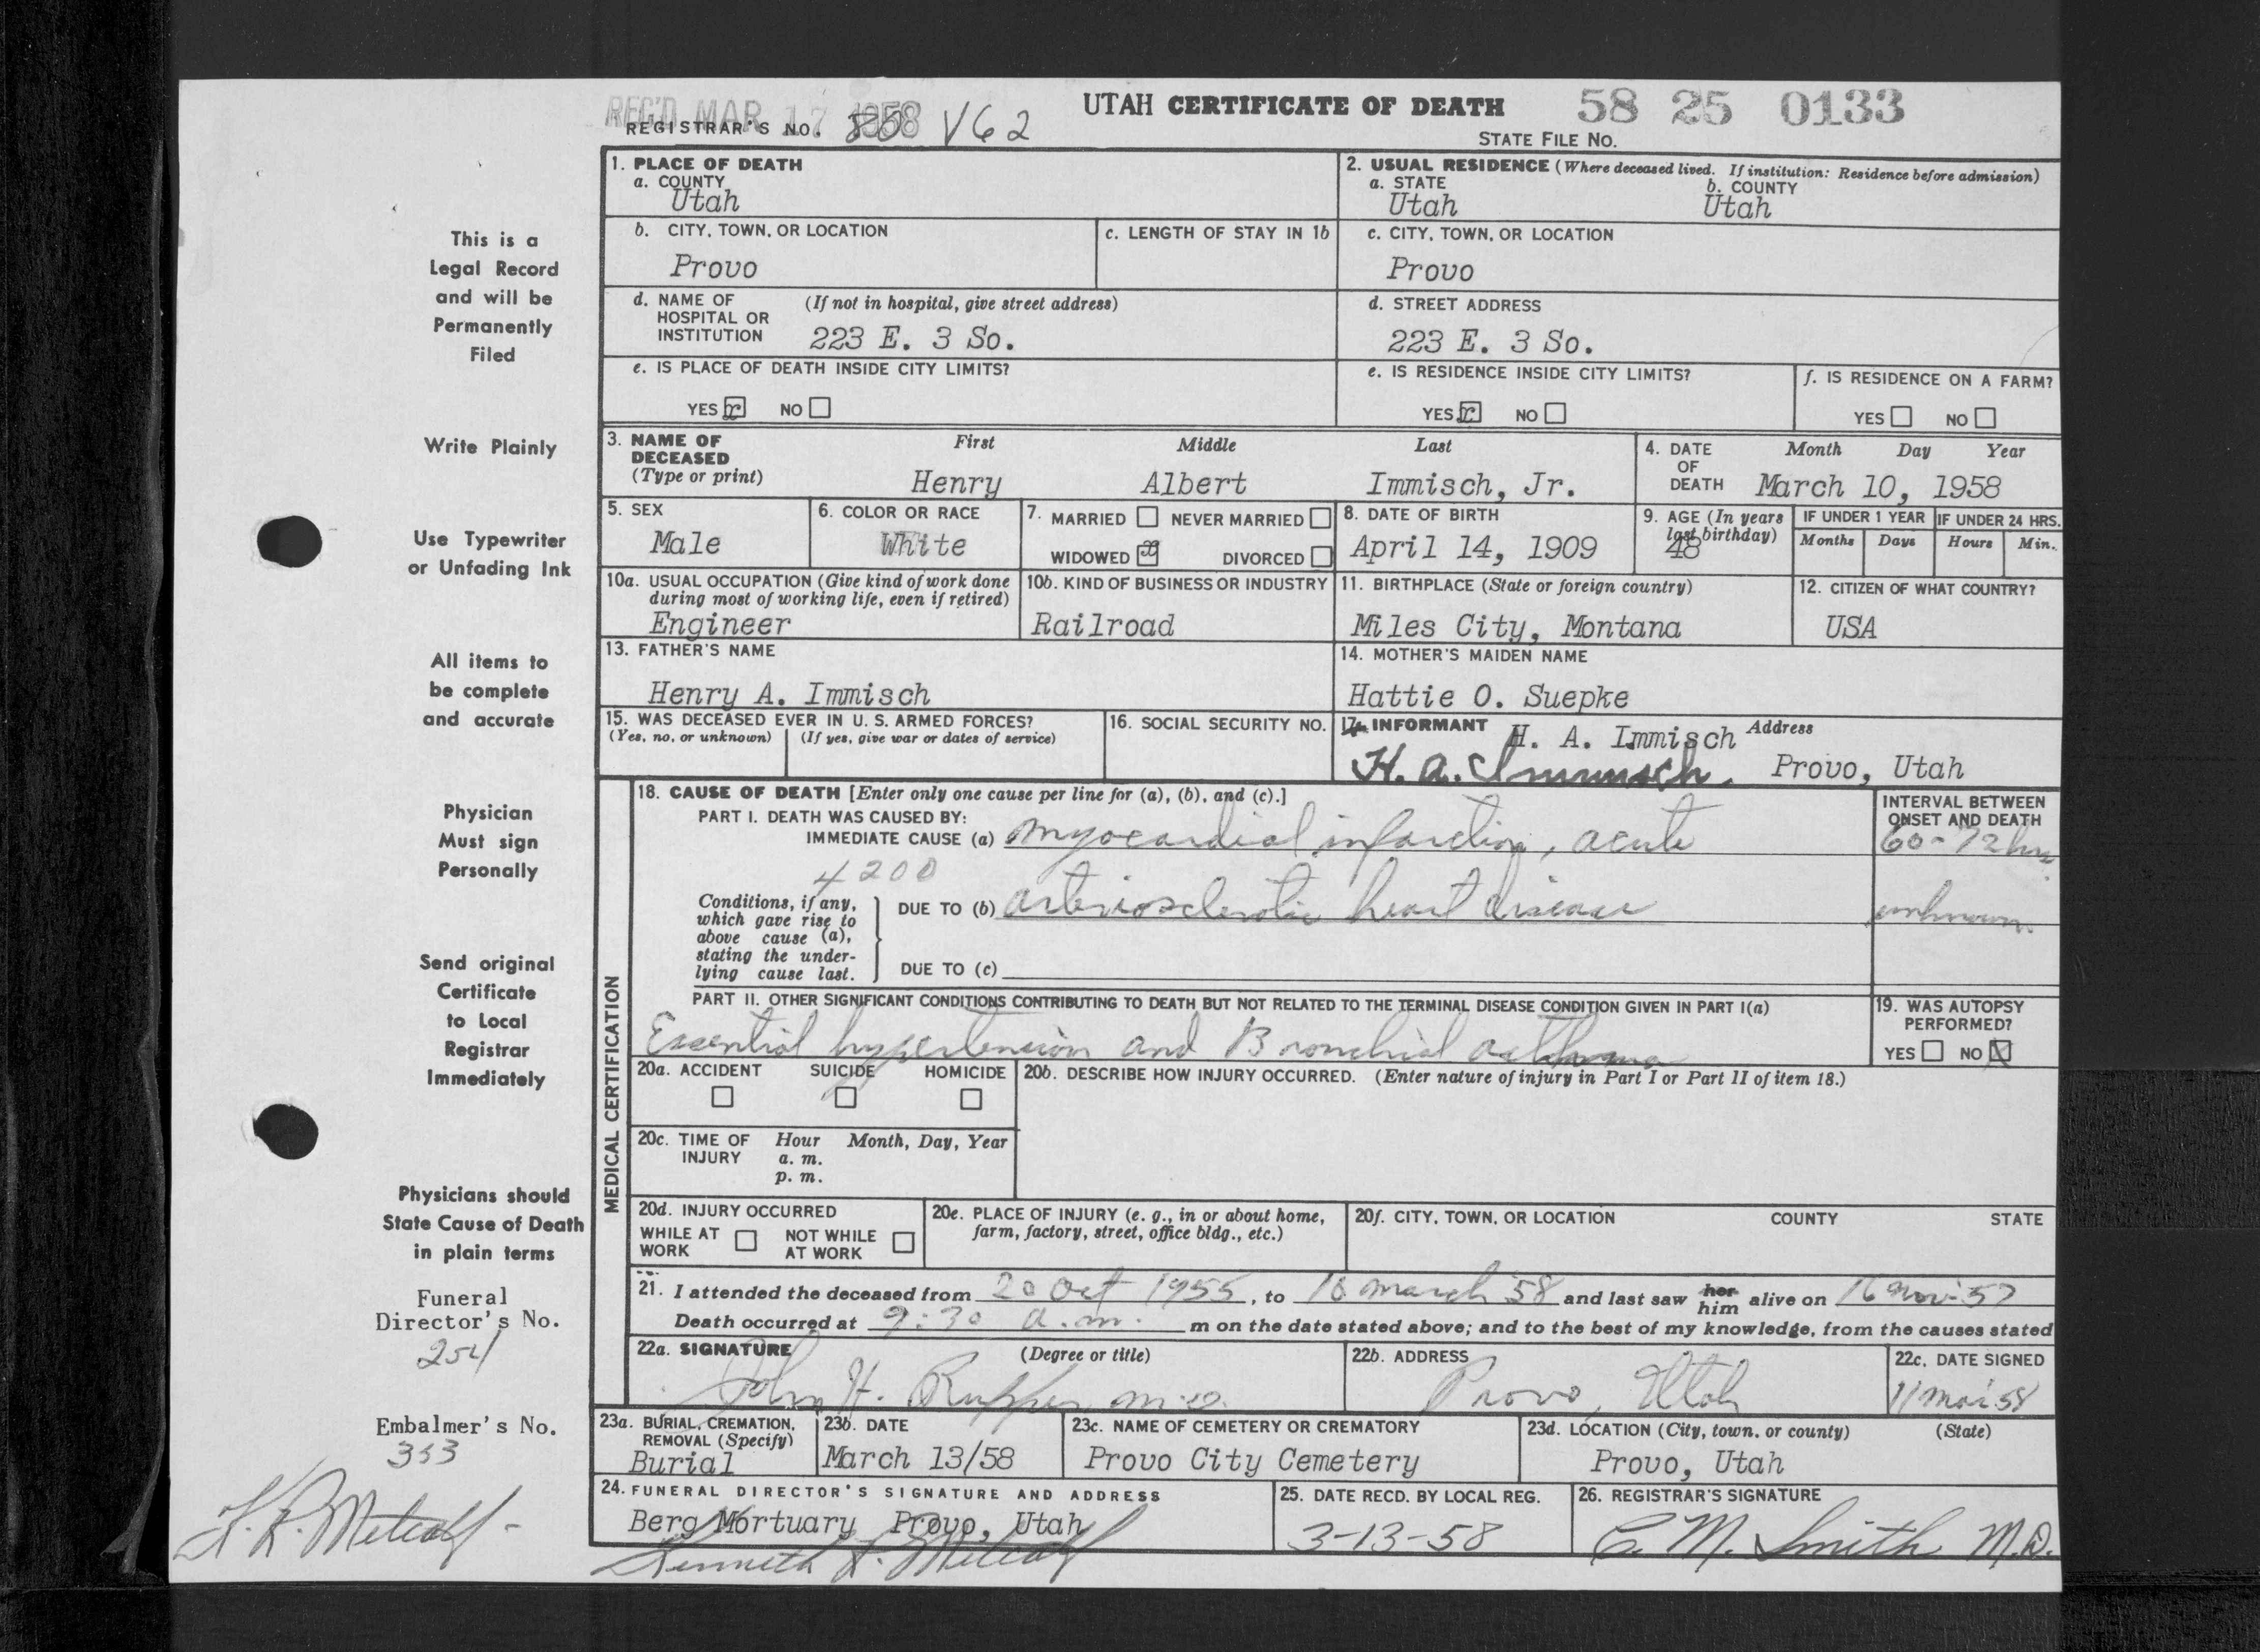 REC'D MAR 17 1958
UTAH CERTIFICATE OF DEATH 58 25 0133
REGISTRAR'S NO. V62 STATE FILE NO.
1. PLACE OF DEATH
a. COUNTY
Utah
2. USUAL RESIDENCE (Where deceased lived. If institution: Residence before admission)
a. STATE b. COUNTY
Utah Utah
b. CITY, TOWN, OR LOCATION c. LENGTH OF STAY IN 1b
Provo
c. CITY, TOWN, OR LOCATION
Provo
d. NAME OF HOSPITAL OR INSTITUTION (If not in hospital, give street address)
223 E. 3 So.
d. STREET ADDRESS
223 E. 3 So.
e. IS PLACE OF DEATH INSIDE CITY LIMITS?
YES x NO
e. IS RESIDENCE INSIDE CITY LIMITS?
YES x NO
f. IS RESIDENCE ON A FARM?
YES NO
3. NAME OF DECEASED (Type or print) First Middle Last
Henry Albert Immisch, Jr.
4. DATE OF DEATH Month Day Year
March 10, 1958
5. SEX
Male
6. COLOR OR RACE
White
7. MARRIED NEVER MARRIED
WIDOWED x DIVORCED
8. DATE OF BIRTH
April 14, 1909
9. AGE (In years last birthday)
48
IF UNDER 1 YEAR IF UNDER 24 HRS.
Months Days Hours Min.
10a. USUAL OCCUPATION (Give kind of work done during most of working life, even if retired)
Engineer
10b. KIND OF BUSINESS OR INDUSTRY
Railroad
11. BIRTHPLACE (State or foreign country)
Miles City, Montana
12. CITIZEN OF WHAT COUNTRY?
USA
13. FATHER'S NAME
Henry A. Immisch
14. MOTHER'S MAIDEN NAME
Hattie O. Suepke
15. WAS DECEASED EVER IN U. S. ARMED FORCES?
(Yes, no, or unknown) (If yes, give war or dates of service)
16. SOCIAL SECURITY NO.
17. INFORMANT H. A. Immisch Address
H. A. Immisch. Provo, Utah
MEDICAL CERTIFICATION
18. CAUSE OF DEATH [Enter only one cause per line for (a), (b), and (c).]
PART I. DEATH WAS CAUSED BY:
IMMEDIATE CAUSE (a) myocardial infarction, acute
INTERVAL BETWEEN ONSET AND DEATH
60-72 hrs
4200
Conditions, if any, which gave rise to above cause (a), stating the underlying cause last.
DUE TO (b) arteriosclerotic heart disease unknown
DUE TO (c)
PART II. OTHER SIGNIFICANT CONDITIONS CONTRIBUTING TO DEATH BUT NOT RELATED TO THE TERMINAL DISEASE CONDITION GIVEN IN PART I(a)
Essential hypertension and Bronchial asthma
19. WAS AUTOPSY PERFORMED?
YES NO X
20a. ACCIDENT SUICIDE HOMICIDE
20b. DESCRIBE HOW INJURY OCCURRED. (Enter nature of injury in Part I or Part II of item 18.)
20c. TIME OF INJURY Hour Month, Day, Year
a. m.
p. m.
20d. INJURY OCCURRED
WHILE AT WORK NOT WHILE AT WORK
20e. PLACE OF INJURY (e. g., in or about home, farm, factory, street, office bldg., etc.)
20f. CITY, TOWN, OR LOCATION COUNTY STATE
21. I attended the deceased from 20 Oct 1955, to 10 March '58 and last saw her him alive on 16 Nov. 57
Death occurred at 9:30 a.m. m on the date stated above; and to the best of my knowledge, from the causes stated
22a. SIGNATURE (Degree or title)
John H. Rupper, M.D.
22b. ADDRESS
Provo, Utah
22c. DATE SIGNED
11 Mar 58
23a. BURIAL, CREMATION, REMOVAL (Specify)
Burial
23b. DATE
March 13/58
23c. NAME OF CEMETERY OR CREMATORY
Provo City Cemetery
23d. LOCATION (City, town, or county) (State)
Provo, Utah
24. FUNERAL DIRECTOR'S SIGNATURE AND ADDRESS
Berg Mortuary Provo, Utah
Kenneth L. Metcalf
25. DATE RECD. BY LOCAL REG.
3-13-58
26. REGISTRAR'S SIGNATURE
C. M. Smith M.D.
This is a
Legal Record
and will be
Permanently
Filed
Write Plainly
Use Typewriter
or Unfading Ink
All items to
be complete
and accurate
Physician
Must sign
Personally
Send original
Certificate
to Local
Registrar
Immediately
Physicians should
State Cause of Death
in plain terms
Funeral
Director's No.
254
Embalmer's No.
353
K. L. Metcalf